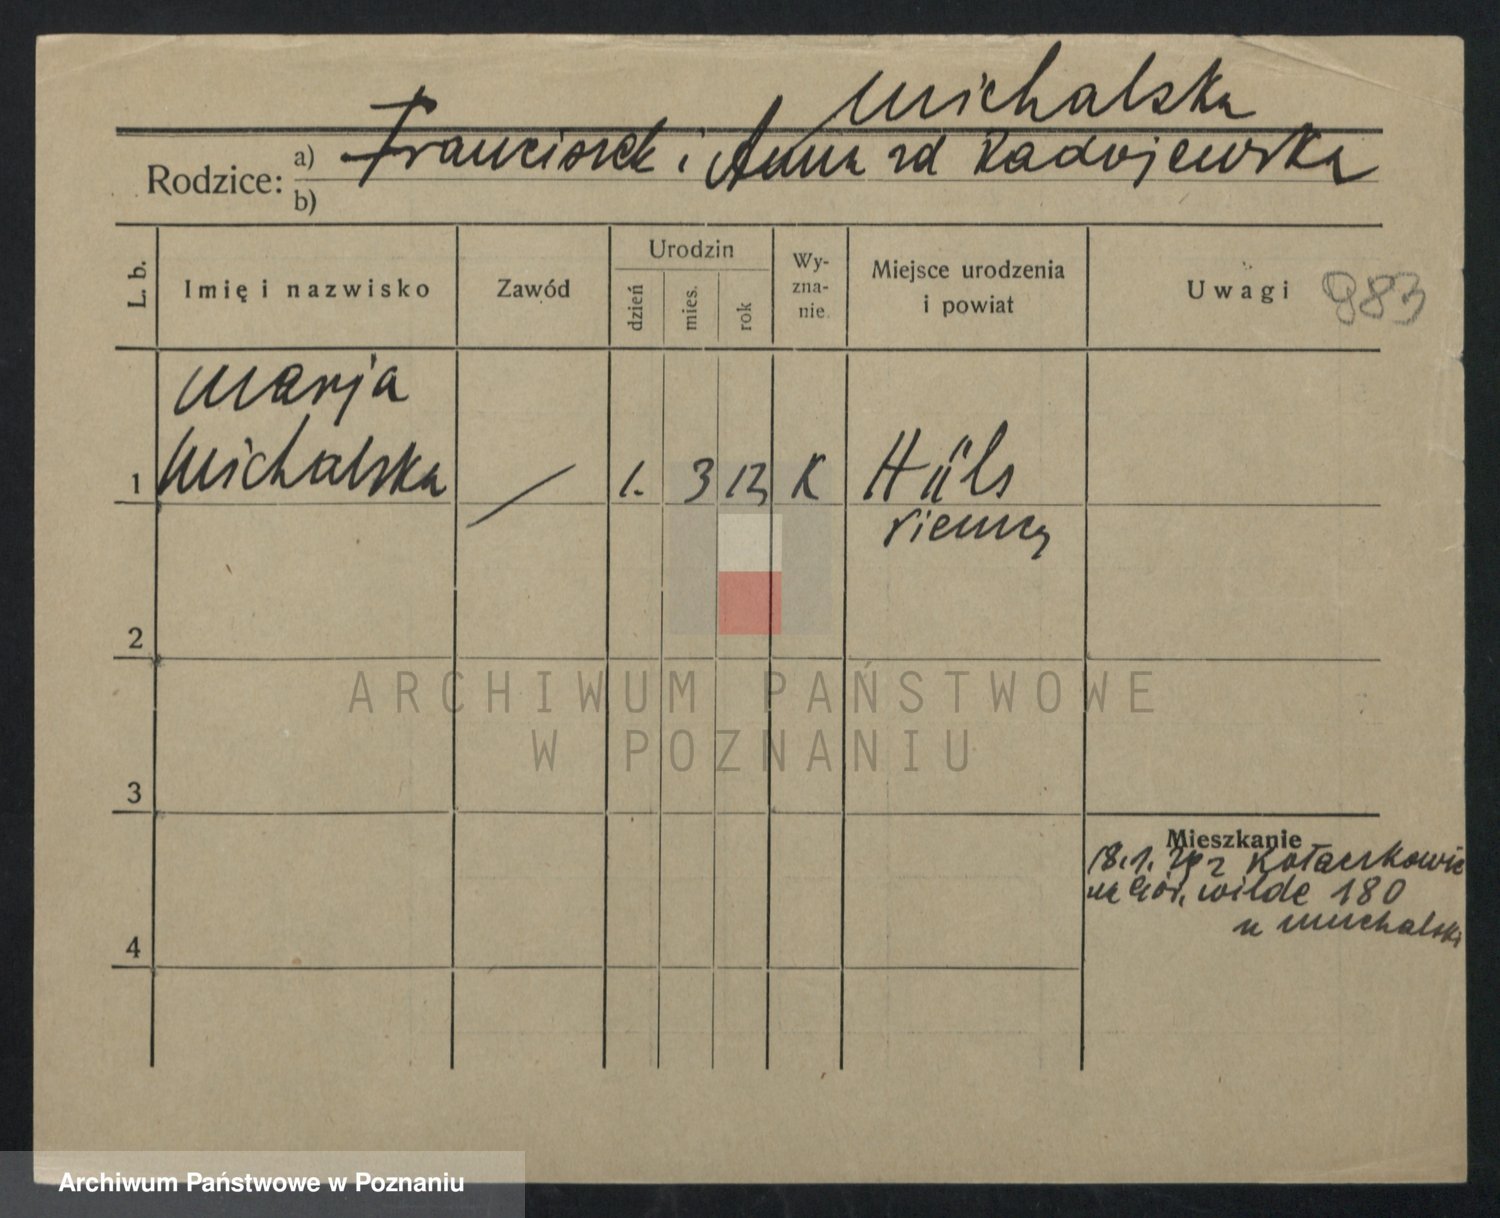 Michalska
Rodzice: a) Franciszek i Anna zd Radojewska
b)
L. b. Imię i nazwisko Zawód Urodzin dzień mies. rok Wy-zna-nie Miejsce urodzenia i powiat Uwagi 983
Marja
1 Michalska 1. 3 13 K Hüls
niemcy
2
ARCHIWUM PAŃSTWOWE
W POZNANIU
3
Mieszkanie
18.1. z Kołaczkowic
na Gór. Wilde 180
u Michalski
4
Archiwum Państwowe w Poznaniu